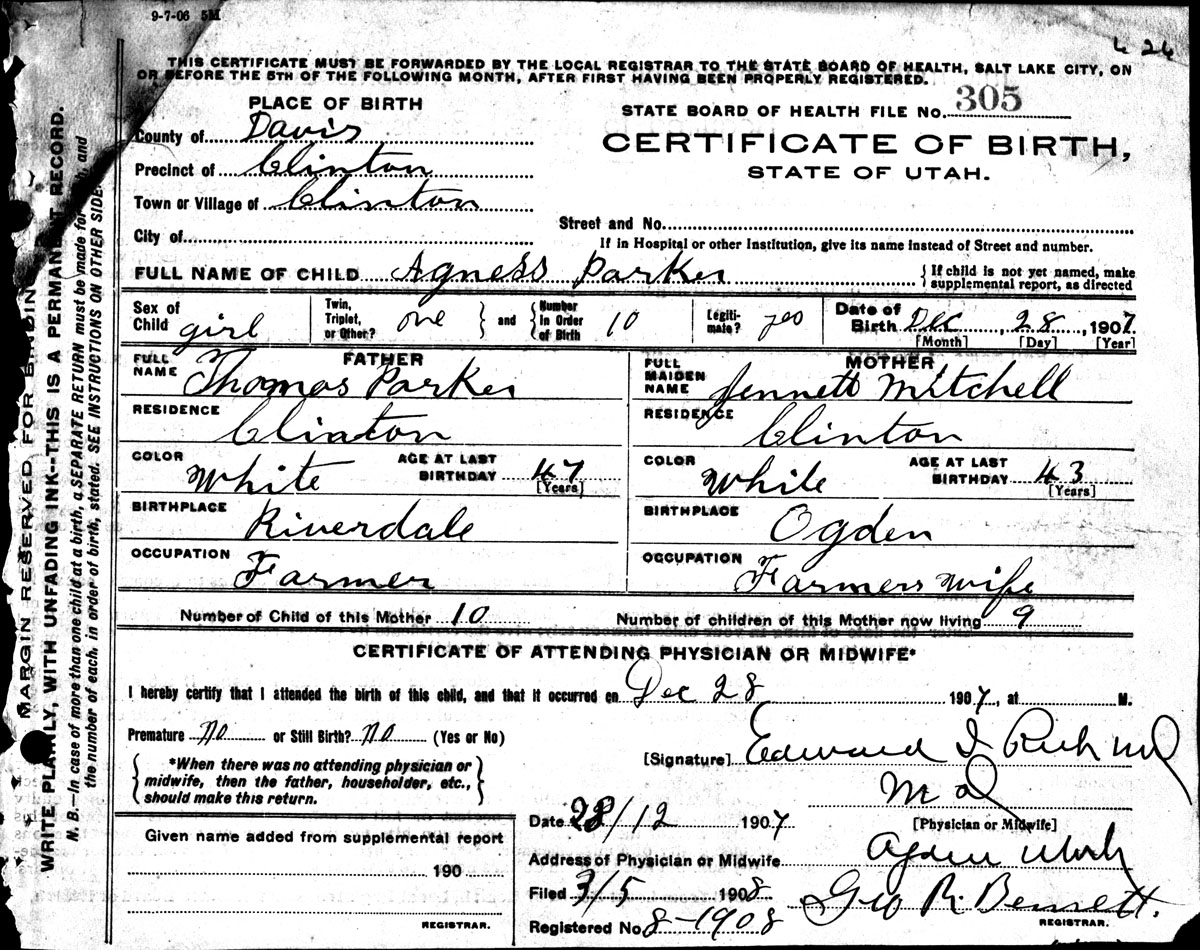 9-7-06 5M
THIS CERTIFICATE MUST BE FORWARDED BY THE LOCAL REGISTRAR TO THE STATE BOARD OF HEALTH, SALT LAKE CITY, ON
OR BEFORE THE 5TH OF THE FOLLOWING MONTH, AFTER FIRST HAVING BEEN PROPERLY REGISTERED.
PLACE OF BIRTH
STATE BOARD OF HEALTH FILE No. 305
County of Davis
CERTIFICATE OF BIRTH,
Precinct of Clinton
STATE OF UTAH.
Town or Village of Clinton
Street and No.
City of
If in Hospital or other Institution, give its name instead of Street and number.
FULL NAME OF CHILD Agness Parker
{ If child is not yet named, make
supplemental report, as directed
Sex of Child girl
Twin, Triplet, or Other? one } and { Number in Order of Birth 10
Legitimate? yes
Date of Birth Dec, 28, 1907
[Month] [Day] [Year]
FATHER
FULL NAME Thomas Parker
RESIDENCE Clinton
COLOR White AGE AT LAST BIRTHDAY 47
[Years]
BIRTHPLACE Riverdale
OCCUPATION Farmer
MOTHER
FULL MAIDEN NAME Jennett Mitchell
RESIDENCE Clinton
COLOR White AGE AT LAST BIRTHDAY 43
[Years]
BIRTHPLACE Ogden
OCCUPATION Farmers wife
Number of Child of this Mother 10 Number of children of this Mother now living 9
CERTIFICATE OF ATTENDING PHYSICIAN OR MIDWIFE*
I hereby certify that I attended the birth of this child, and that it occurred on Dec 28 1907, at M.
Premature no or Still Birth? no (Yes or No)
[Signature] Edward I Rich MD
{ *When there was no attending physician or
midwife, then the father, householder, etc.,
should make this return. }
M D
[Physician or Midwife]
Date 28/12 1907
Address of Physician or Midwife Ogden Utah
Filed 3/5 1908 Geo R. Bennett.
Registered No. 8-1908 REGISTRAR.
Given name added from supplemental report
190
REGISTRAR.
MARGIN RESERVED FOR BINDING
WRITE PLAINLY, WITH UNFADING INK--THIS IS A PERMANENT RECORD.
N. B.—In case of more than one child at a birth, a SEPARATE RETURN must be made for and
the number of each, in order of birth, stated. SEE INSTRUCTIONS ON OTHER SIDE